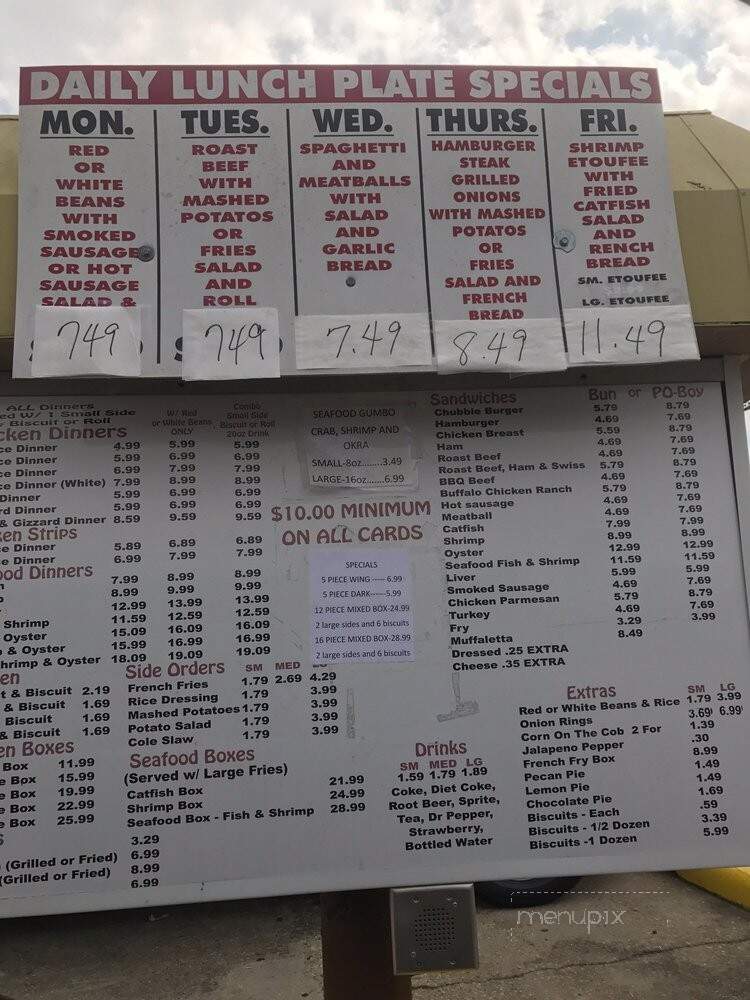 DAILY LUNCH PLATE SPECIALS
MON.
RED
OR
WHITE
BEANS
WITH
SMOKED
SAUSAGE
OR HOT
SAUSAGE
SALAD &
749
TUES.
ROAST
BEEF
WITH
MASHED
POTATOS
OR
FRIES
SALAD
AND
ROLL
749
WED.
SPAGHETTI
AND
MEATBALLS
WITH
SALAD
AND
GARLIC
BREAD
7.49
THURS.
HAMBURGER
STEAK
GRILLED
ONIONS
WITH MASHED
POTATOS
OR
FRIES
SALAD AND
FRENCH
BREAD
8.49
FRI.
SHRIMP
ETOUFEE
WITH
FRIED
CATFISH
SALAD
AND
RENCH
BREAD
SM. ETOUFEE
LG. ETOUFEE
11.49
ALL Dinners
ed W/ 1 Small Side
r Biscuit or Roll
W/ Red
or White Beans
ONLY
Combo
Small Side
Biscuit or Roll
20oz Drink
cken Dinners
ce Dinner 4.99 5.99 5.99
ce Dinner 5.99 6.99 6.99
ce Dinner 6.99 7.99 7.99
ce Dinner (White) 7.99 8.99 8.99
Dinner 5.99 6.99 6.99
rd Dinner 5.99 6.99 6.99
& Gizzard Dinner 8.59 9.59 9.59
ken Strips
ce Dinner 5.89 6.89 6.89
e Dinner 6.99 7.99 7.99
ood Dinners
7.99 8.99 8.99
8.99 9.99 9.99
12.99 13.99 13.99
Shrimp 11.59 12.59 12.59
Oyster 15.09 16.09 16.09
& Oyster 15.99 16.99 16.99
hrimp & Oyster 18.09 19.09 19.09
en
t & Biscuit 2.19
& Biscuit 1.69
Biscuit 1.69
& Biscuit 1.69
en Boxes
Box 11.99
e Box 15.99
e Box 19.99
e Box 22.99
e Box 25.99
3.29
(Grilled or Fried) 6.99
(Grilled or Fried) 8.99
6.99
Side Orders SM MED LG
French Fries 1.79 2.69 4.29
Rice Dressing 1.79 3.99
Mashed Potatoes 1.79 3.99
Potato Salad 1.79 3.99
Cole Slaw 1.79 3.99
Seafood Boxes
(Served w/ Large Fries)
Catfish Box 21.99
Shrimp Box 24.99
Seafood Box - Fish & Shrimp 28.99
SEAFOOD GUMBO
CRAB, SHRIMP AND
OKRA
SMALL-8oz........3.49
LARGE-16oz.......6.99
$10.00 MINIMUM
ON ALL CARDS
SPECIALS
5 PIECE WING ----- 6.99
5 PIECE DARK------5.99
12 PIECE MIXED BOX-24.99
2 large sides and 6 biscuits
16 PIECE MIXED BOX-28.99
2 large sides and 6 biscuits
Drinks
SM MED LG
1.59 1.79 1.89
Coke, Diet Coke,
Root Beer, Sprite,
Tea, Dr Pepper,
Strawberry,
Bottled Water
Sandwiches Bun or PO-Boy
Chubbie Burger 5.79 8.79
Hamburger 4.69 7.69
Chicken Breast 5.59 8.79
Ham 4.69 7.69
Roast Beef 4.69 7.69
Roast Beef, Ham & Swiss 5.79 8.79
BBQ Beef 4.69 7.69
Buffalo Chicken Ranch 5.79 8.79
Hot sausage 4.69 7.69
Meatball 4.69 7.69
Catfish 7.99 7.99
Shrimp 8.99 8.99
Oyster 12.99 12.99
Seafood Fish & Shrimp 11.59 11.59
Liver 5.99 5.99
Smoked Sausage 4.69 7.69
Chicken Parmesan 5.79 8.79
Turkey 4.69 7.69
Fry 3.29 3.99
Muffaletta 8.49
Dressed .25 EXTRA
Cheese .35 EXTRA
Extras SM LG
Red or White Beans & Rice 1.79 3.99
Onion Rings 3.69 6.99
Corn On The Cob 2 For 1.39
Jalapeno Pepper .30
French Fry Box 8.99
Pecan Pie 1.49
Lemon Pie 1.49
Chocolate Pie 1.69
Biscuits - Each .59
Biscuits - 1/2 Dozen 3.39
Biscuits -1 Dozen 5.99
menupix